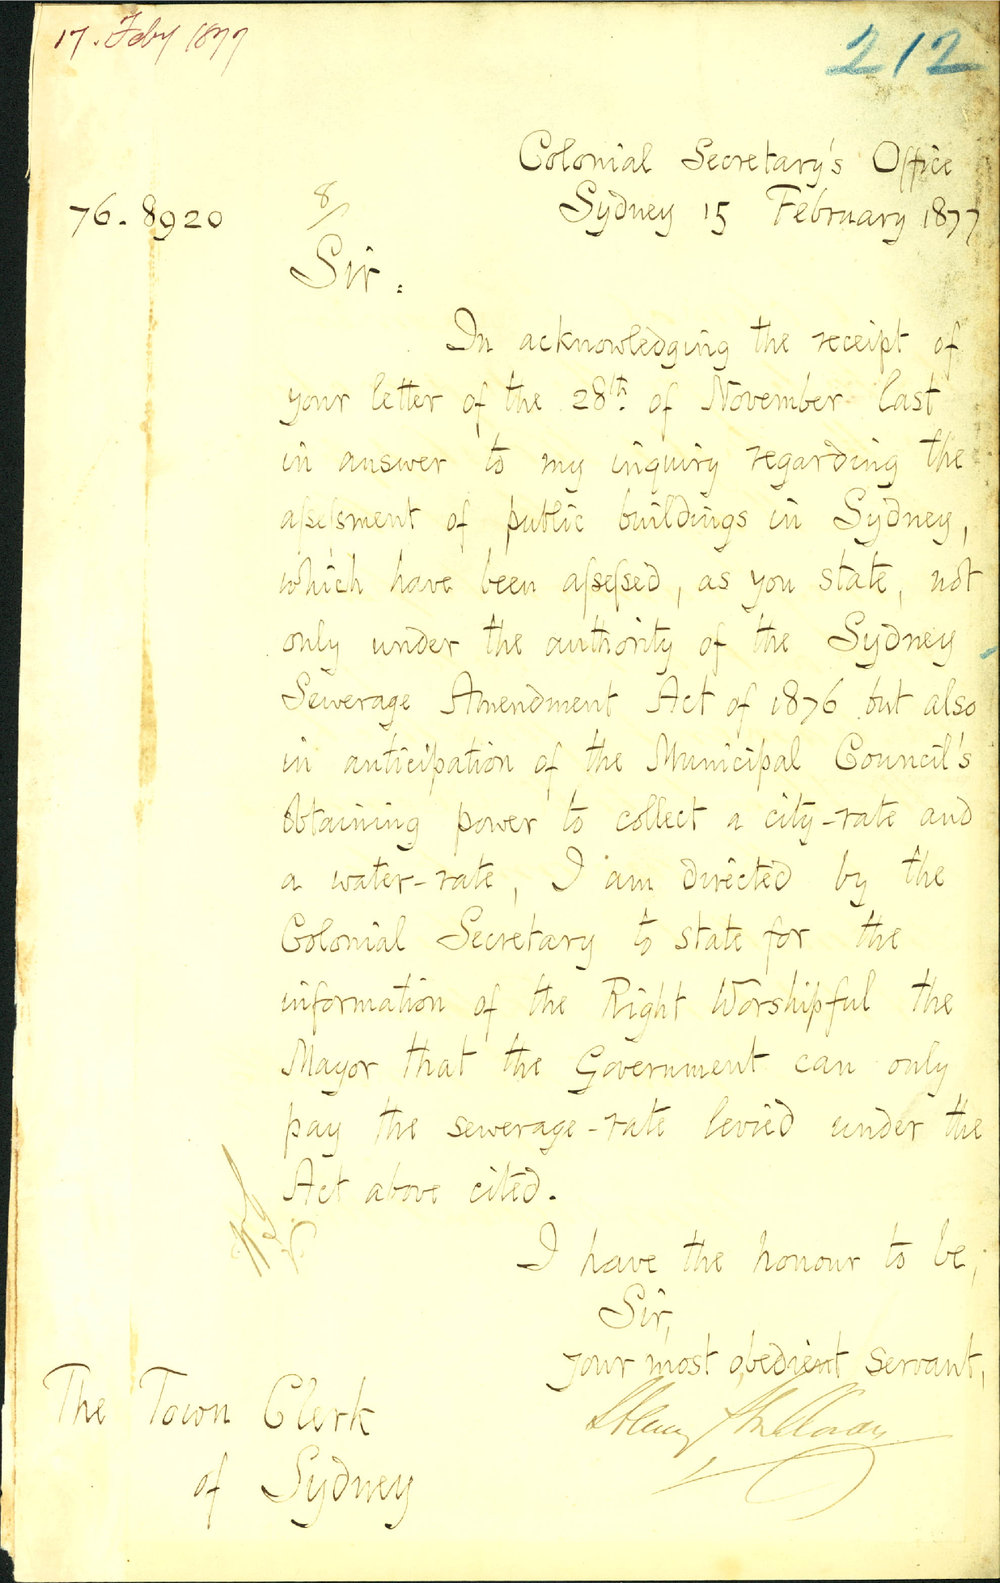 17. Feby 1877
212
Colonial Secretary's Office
76. 8920
8/
Sydney 15 February 1877
Sir.
In acknowledging the receipt of
your letter of the 28th. of November last
in answer to my inquiry regarding the
aſseſsment of public buildings in Sydney,
which have been aſseſsed, as you state, not
only under the authority of the Sydney
Sewerage Amendment Act of 1876 but also
in anticipation of the Municipal Council's
obtaining power to collect a city-rate and
a water-rate, I am directed by the
Colonial Secretary to state for the
information of the Right Worshipful the
Mayor that the Government can only
pay the sewerage-rate levied under the
Act above cited.
I have the honour to be,
Sir,
your most obedient servant,
Henry Halloran
The Town Clerk
of Sydney